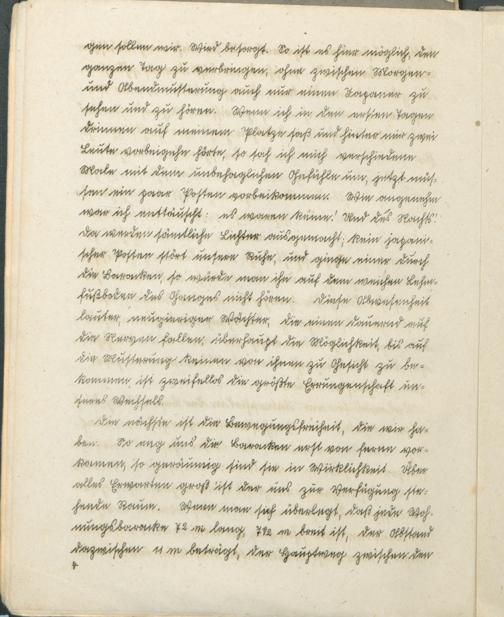 gen sollen wir. Wird besorgt. So ist es hier möglich, den
ganzen Tag zu verbringen, ohne zwischen Morgen-
und Abendmusterung auch nur einen Japaner zu
sehen und zu hören. Wenn ich in den ersten Tagen
drinnen auf meinem Platze saß und hinter mir zwei
Leute vorbeigehn hörte, so sah ich mich verschiedene
Male mit dem unbehaglichen Gefühle um, jetzt müs-
sen ein paar Posten vorbeikommen. Wie angenehm
war ich enttäuscht: es waren keine! Und des Nachts!
Da werden sämtliche Lichter ausgemacht; kein japani-
scher Posten stört unsere Ruhe, und ginge einer durch
die Baracken, so würde man ihn auf dem weichen Lehm-
fußboden des Ganges nicht hören. Diese Abwesenheit
lauter, neugieriger Wächter, die einem dauernd auf
die Nerven fallen, überhaupt die Möglichkeit, bis auf
die Musterung keinen von ihnen zu Gesicht zu be-
kommen ist zweifellos die größte Errungenschaft un-
seres Wechsels.
Die nächste ist die Bewegungsfreiheit, die wir ha-
ben. So eng uns die Baracken erst von ferne vor-
kamen, so geräumig sind sie in Wirklichkeit. Über
alles Erwarten groß ist der uns zur Verfügung ste-
hende Raum. Wenn man sich überlegt, daß jede Woh-
nungsbaracke 72 m lang, 7½ m breit ist, der Abstand
dazwischen 11 m beträgt, der Hauptweg zwischen den